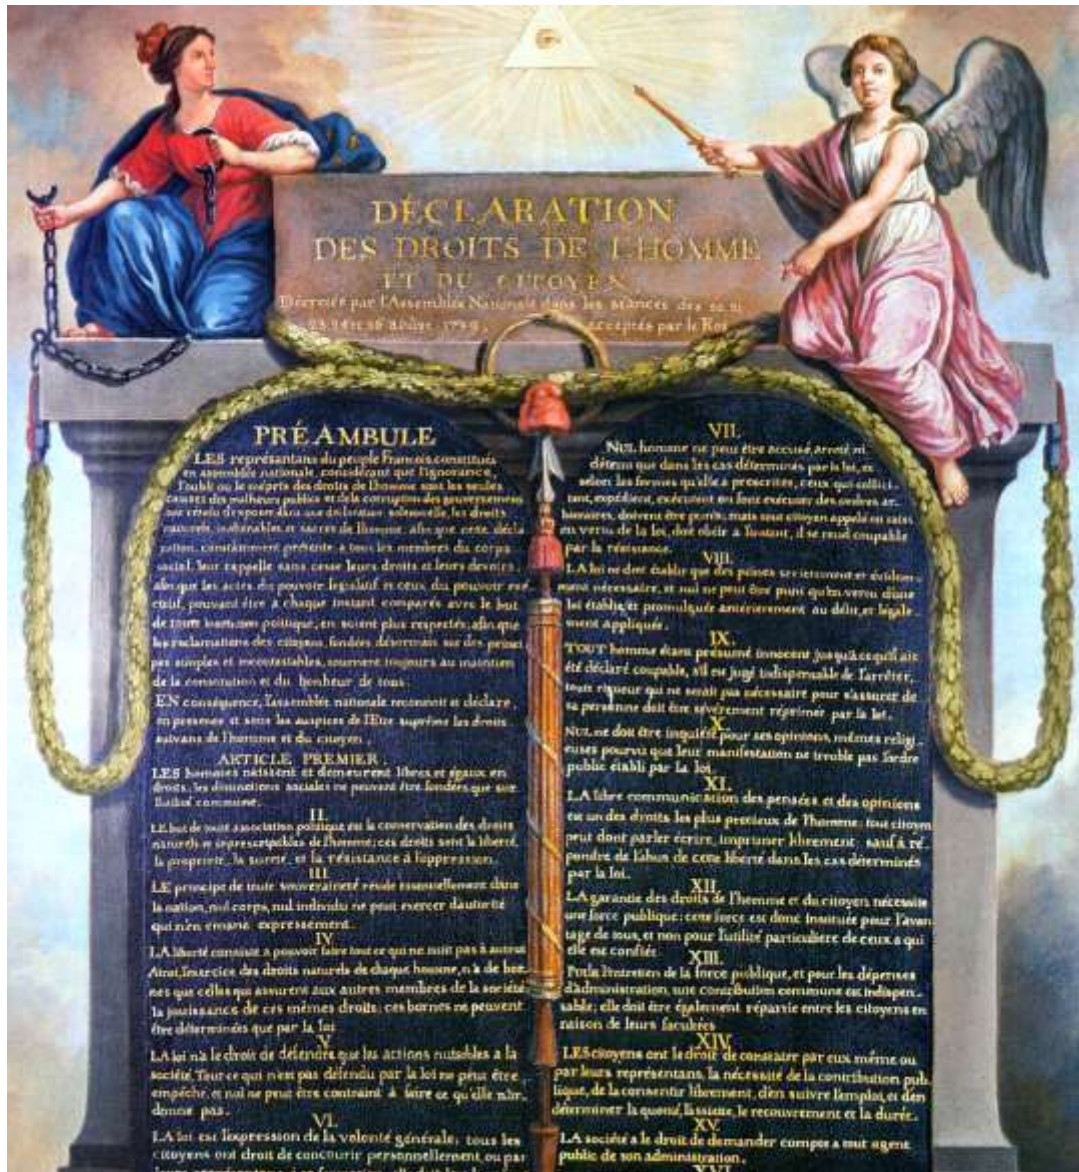 DÉCLARATION
DES DROITS DE L'HOMME
ET DU CITOYEN,
Décretés par l'Assemblée Nationale dans les séances des 20. 21
23. 24 et 26 aoust 1789, acceptés par le Roi
PRÉAMBULE
LES représentans du peuple Francois, constitués
en assemblée nationale, considérant que l'ignorance,
l'oubli ou le mépris des droits de l'homme sont les seules
causes des malheurs publics et de la corruption des gouvernemens
ont résolu d'exposer dans une déclaration solemnelle, les droits
naturels, inaliénables et sacrés de l'homme, afin que cette décla
ration, constamment présente a tous les membres du corps
social, leur rappelle sans cesse leurs droits et leurs devoirs,
afin que les actes du pouvoir legislatif et ceux du pouvoir exé
cutif, pouvant être à chaque instant comparés avec le but
de toute institution politique, en soient plus respectés; afin que
les reclamations des citoyens, fondées désormais sur des princi
pes simples et incontestables, tournent toujours au maintien
de la constitution et du bonheur de tous.
EN conséquence, l'assemblée nationale reconnoit et déclare
en presence et sous les auspices de l'Etre suprême les droits
suivans de l'homme et du citoyen.
ARTICLE PREMIER.
LES hommes naissent et demeurent libres et égaux en
droits, les distinctions sociales ne peuvent être fondées que sur
l'utilité commune.
II.
LE but de toute association politique est la conservation des droits
naturels et imprescriptibles de l'homme; ces droits sont la liberté,
la propriété, la sureté, et la résistance à l'oppression.
III.
LE principe de toute souveraineté réside essentiellement dans
la nation, nul corps, nul individu ne peut exercer d'autorité
qui n'en emane expressément.
IV.
LA liberté consiste a pouvoir faire tout ce qui ne nuit pas à autrui
Ainsi, l'exercice des droits naturels de chaque homme, n'a de bor-
nes que celles qui assurent aux autres membres de la société
la jouissance de ces mêmes droits; ces bornes ne peuvent
être déterminées que par la loi
V.
LA loi n'a le droit de défendre que les actions nuisibles a la
société. Tout ce qui n'est pas défendu par la loi ne peut être
empêché, et nul ne peut être contraint à faire ce qu'elle n'or-
donne pas.
VI.
LA loi est l'expression de la volonté générale; tous les
citoyens ont droit de concourir personnellement, ou par
VII.
NUL homme ne peut être accusé, arreté ni
détenu que dans les cas déterminés par la loi, et
selon les formes qu'elle a prescrites, ceux qui sollici-
tent, expédient, exécutent ou font exécuter des ordres ar-
bitraires, doivent être punis; mais tout citoyen appelé ou saisi
en vertu de la loi, doit obéir a l'instant, il se rend coupable
par la résistance.
VIII.
LA loi ne doit établir que des peines strictement et évidem-
ment nécessaire, et nul ne peut être puni qu'en vertu d'une
loi établie et promulguée antérieurement au délit, et légale
ment appliquée.
IX.
TOUT homme étant présumé innocent jusqu'à ce qu'il ait
été déclaré coupable, s'il est jugé indispensable de l'arrêter,
toute rigueur qui ne serait pas nécessaire pour s'assurer de
sa personne doit être sévèrement réprimée par la loi.
X.
NUL ne doit être inquiété pour ses opinions, mêmes religi-
euses pourvu que leur manifestation ne trouble pas l'ordre
public établi par la loi.
XI.
LA libre communication des pensées et des opinions
est un des droits les plus precieux de l'homme; tout citoyen
peut dont parler écrire, imprimer librement, sauf à ré-
pondre de l'abus de cette liberté dans les cas déterminés
par la loi.
XII.
LA garantie des droits de l'homme et du citoyen nécessite
une force publique; cette force est donc instituée pour l'avan
tage de tous, et non pour l'utilité particulière de ceux a qui
elle est confiée.
XIII.
Pour l'entretien de la force publique, et pour les dépenses
d'administration, une contribution commune est indispen-
sable; elle doit être également répartie entre les citoyens en
raison de leurs facultées
XIV.
LES citoyens ont le droit de constater par eux même ou
par leurs représentans, la nécessité de la contribution pub-
lique, de la consentir librement, d'en suivre l'emploi, et d'en
déterminer la quotité, l'assiette, le recouvrement et la durée.
XV.
LA société a le droit de demander compte a tout agent
public de son administration.
XVI.